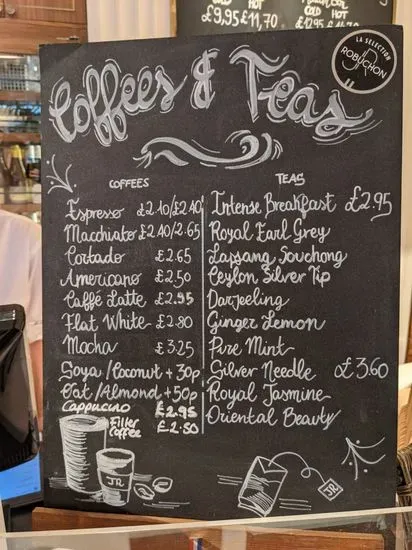 COLD HOT
£9,95 £11,70
COLD HOT
£12,95
LA SELECTION
JR
ROBUCHON
Coffees & Teas
COFFEES
Espresso £2.10/£2.40
Macchiato £2.40/2.65
Cortado £2.65
Americano £2.50
Caffé Latte £2.95
Flat White £2.80
Mocha £3.25
Soya/Coconut + 30p
Oat/Almond + 50p
Cappucino £2.95
Filter Coffee £2.50
JR
TEAS
Intense Breakfast £2.95
Royal Earl Grey
Lapsang Souchong
Ceylon Silver Tip
Darjeeling
Ginger Lemon
Pure Mint
Silver Needle £3.60
Royal Jasmine
Oriental Beauty
JR